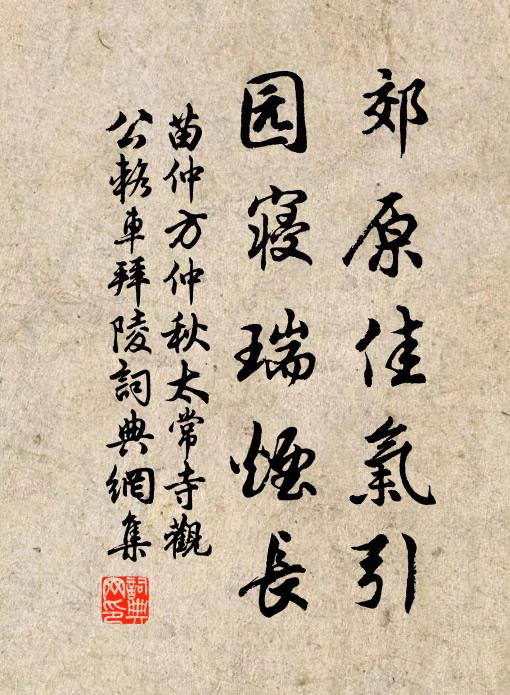 郊原佳氣引
园寢瑞煙長
苗仲方仲秋太常寺觀
公輅車拜陵詞典網集
詞典網印